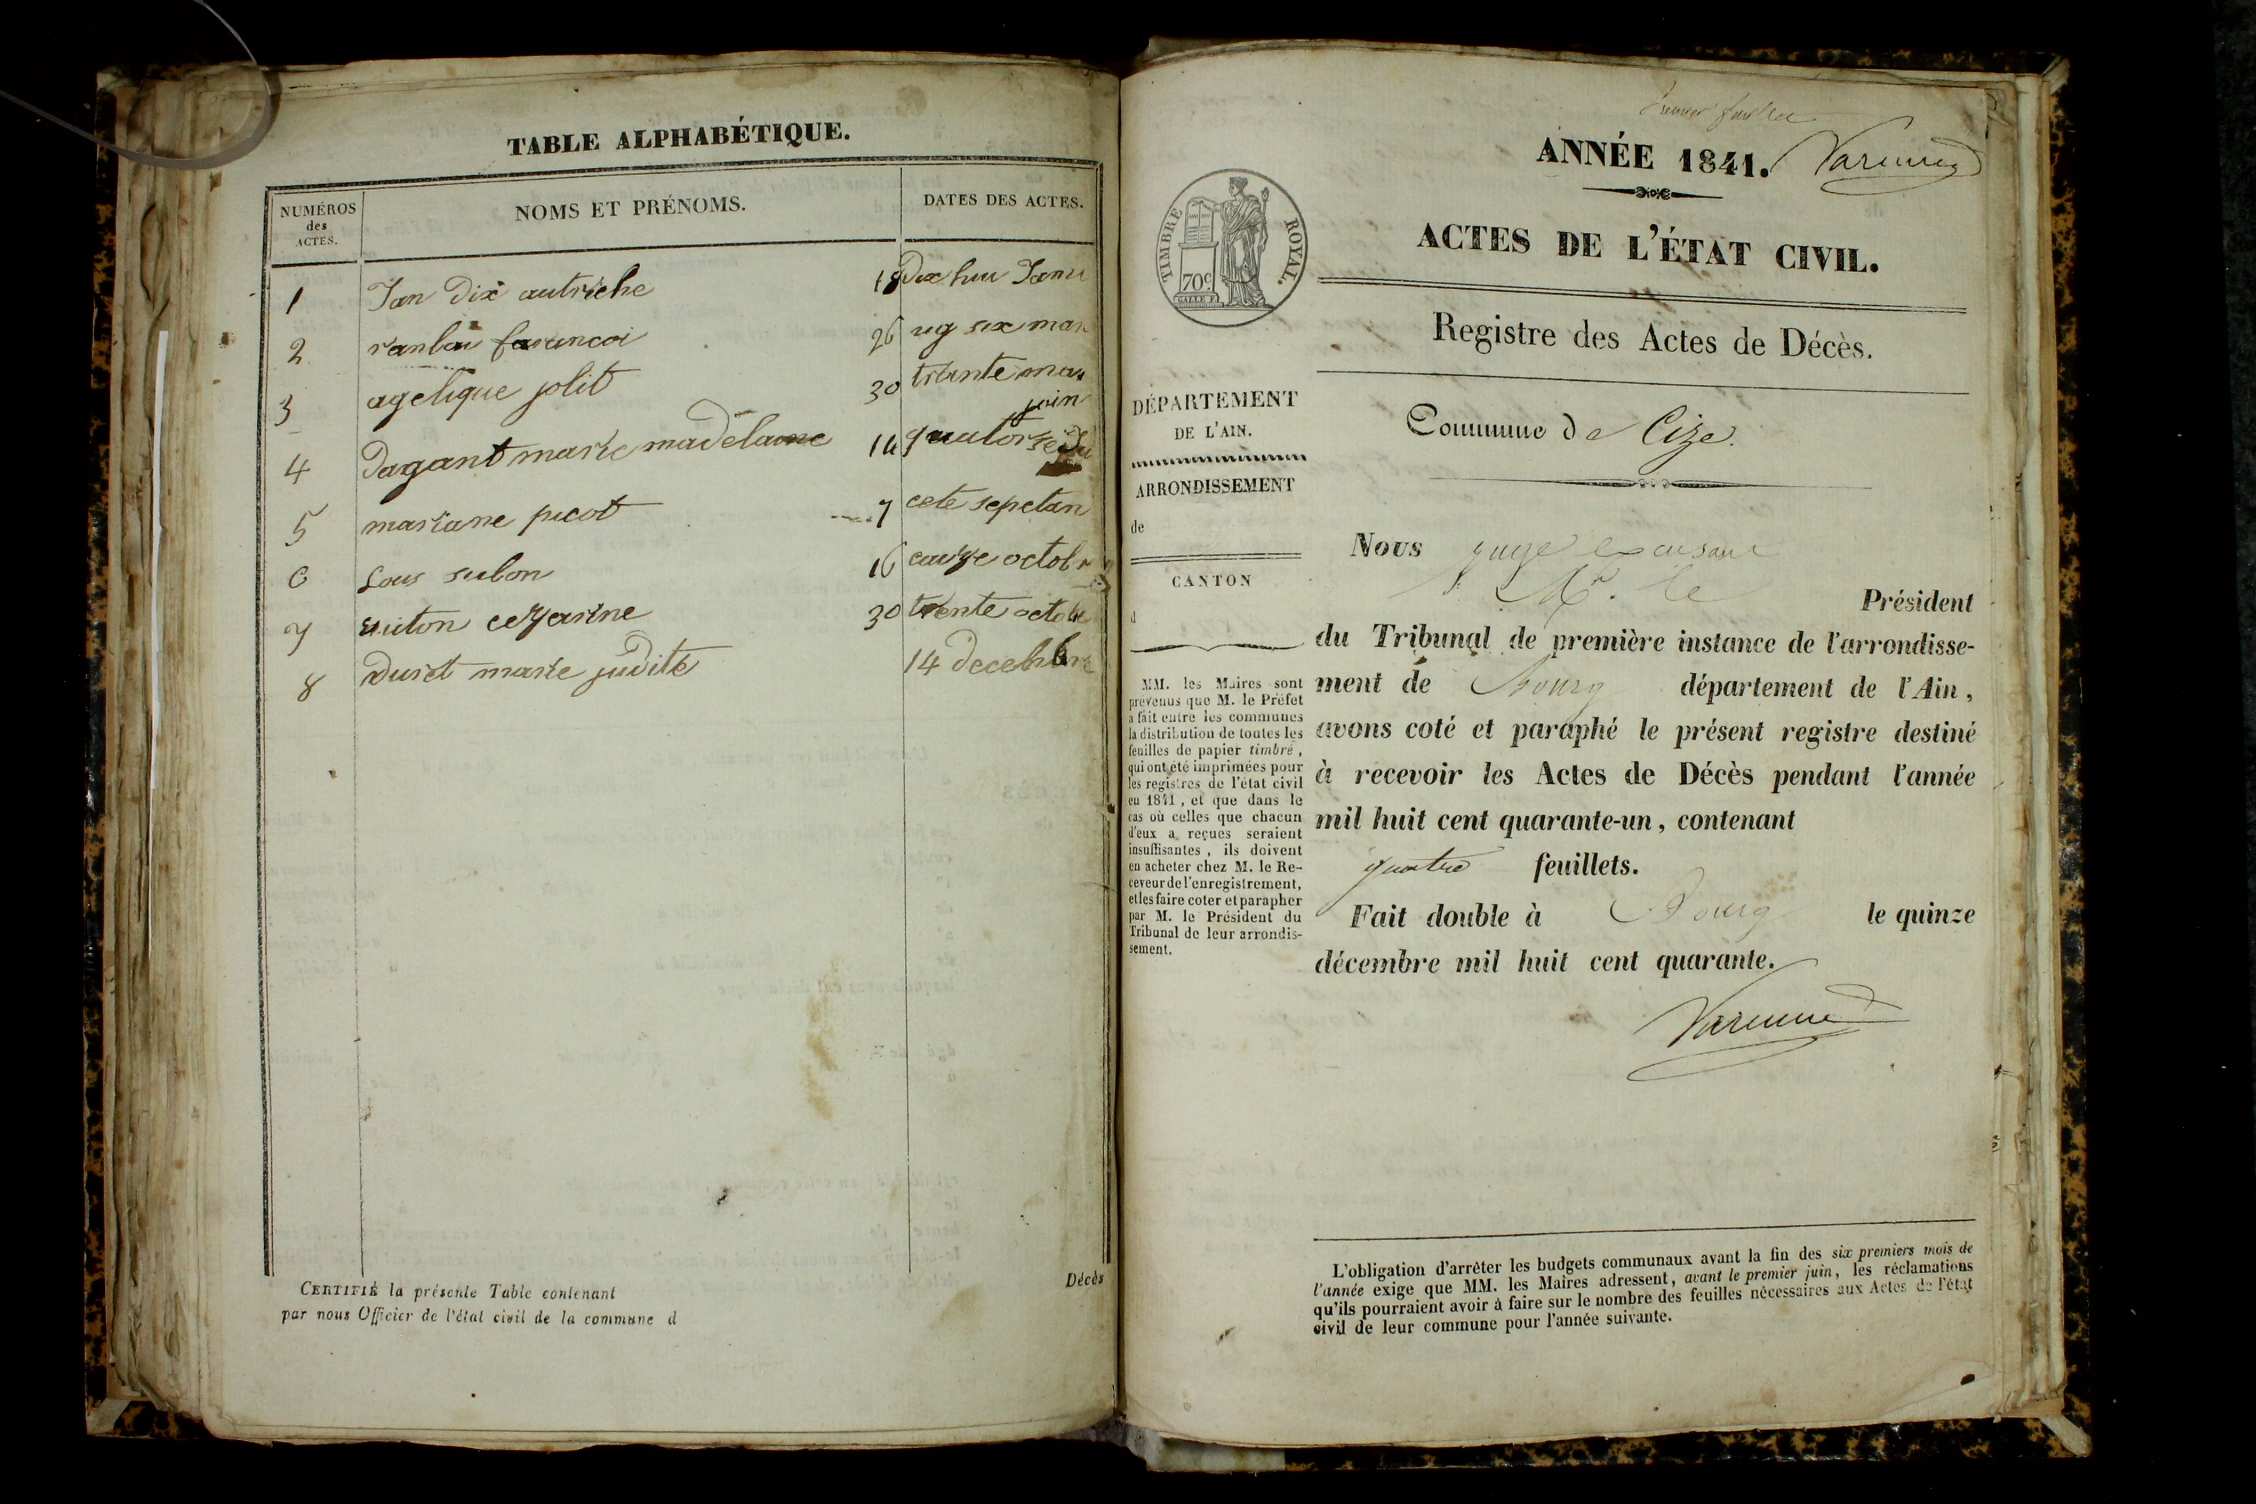 TABLE ALPHABÉTIQUE.
NUMÉROS des ACTES.
NOMS ET PRÉNOMS.
DATES DES ACTES.
1 Jan Dix autriche 18 Dix huu Janu
2 farancoi 26 ug six mar
3 agelique jolit 30 trante mar
juin
4 Dagant marie madelaine 14 quatorse
5 mariane picot 7 cete sepetan
6 Lous sulon 16 octobr
7 cezarine 30 trente octobre
8 Duret marie judite 14 decebbre
Décès
CERTIFIÉ la présente Table contenant
par nous Officier de l'état civil de la commune d
ANNÉE 1841.
TIMBRE ROYAL.
70c
ACTES DE L'ÉTAT CIVIL.
Registre des Actes de Décès.
DÉPARTEMENT
DE L'AIN.
ARRONDISSEMENT
de
CANTON
d
MM. les Maires sont
prévenus que M. le Préfet
a fait entre les communes
la distribution de toutes les
feuilles de papier timbré,
qui ont été imprimées pour
les registres de l'état civil
en 1841, et que dans le
cas où celles que chacun
d'eux a reçues seraient
insuffisantes, ils doivent
en acheter chez M. le Re-
ceveur de l'enregistrement,
et les faire coter et parapher
par M. le Président du
Tribunal de leur arrondis-
sement.
Commune de Cize.
Nous juge
Mr. le Président
du Tribunal de première instance de l'arrondisse-
ment de Bourg département de l'Ain,
avons coté et paraphé le présent registre destiné
à recevoir les Actes de Décès pendant l'année
mil huit cent quarante-un, contenant
quatre feuillets.
Fait double à Bourg le quinze
décembre mil huit cent quarante.
L'obligation d'arrêter les budgets communaux avant la fin des six premiers mois de
l'année exige que MM. les Maires adressent, avant le premier juin, les réclamations
qu'ils pourraient avoir à faire sur le nombre des feuilles nécessaires aux Actes de l'état
civil de leur commune pour l'année suivante.